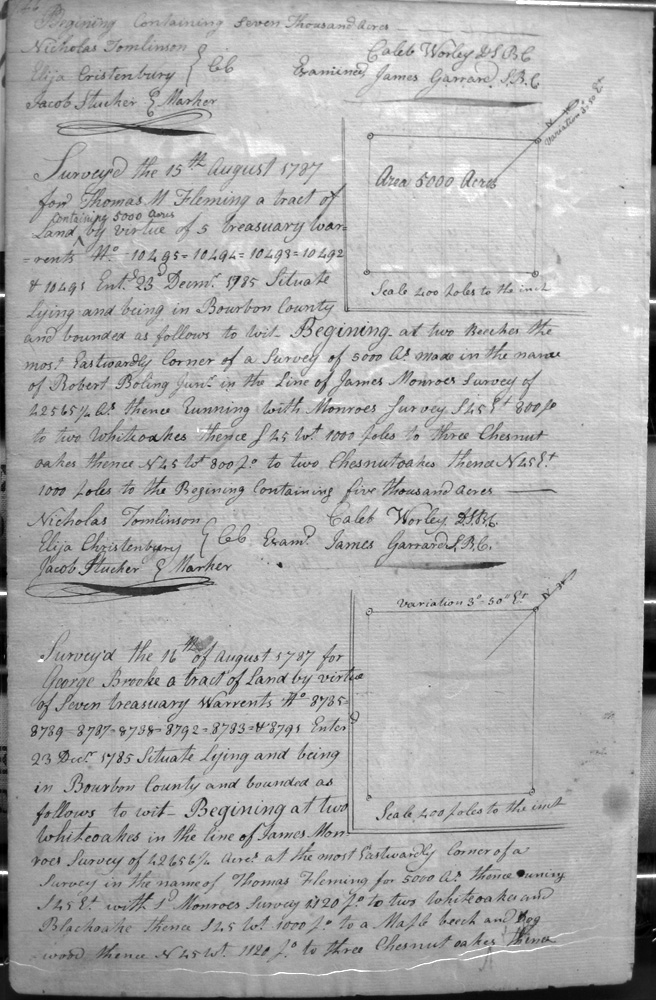 Begining Containing Seven Thousand Acres
Nicholas Tomlinson
Elija Cristenbury } CC
Jacob Stucker } Marker
Caleb Worley D.S.B.C
Examined James Garrard S.B.C
Variation 3°-30' Et
Area 5000 Acres
Scale 400 poles to the inch
Survey'd the 15th August 1787
for Thomas M Fleming a tract of
containing 5000 acres
Land by virtue of 5 treasuary war-
=rents No 10495=10494=10493=10492
& 10491 Entd 23d Decmr 1785 Situate
Lying and being in Bourbon County
and bounded as follows to wit- Begining at two Beeches the
most Eastwardly Corner of a Survey of 5000 As made in the name
of Robert Boling Junr in the Line of James Monroes Survey of
42565¾ As thence Running with Monroes Survey S45 Et 800 po
to two Whiteoakes thence S 45 Wt 1000 poles to three Chesnut
oakes thence N45 Wt 800 po to two Chesnutoakes thence N45 Et
1000 poles to the Begining Containing five thousand acres
Nicholas Tomlinson
Elija Christenbury } CC
Jacob Stucker } Marker
Caleb Worley D.S.B.C.
Examd James Garrard S.B.C.
Variation 3°-30' Et
Scale 400 poles to the inch
Survey'd the 16th of August 1787 for
George Brooke a tract of Land by virtue
of Seven treasuary Warrents No 8785=
8789=8787=8738=8792=8783=&8791 Enter
23 Decr 1785 Situate Lying and being
in Bourbon County and bounded as
follows to wit- Begining at two
Whiteoakes in the line of James Mon-
roes Survey of 42656¾ Acres at the most Eastwardly Corner of a
Survey in the name of Thomas Fleming for 5000 As thence runing
S45 Et with sd Monroes Survey 1120 po to two Whiteoakes and
Blackoake thence S45 Wt 1000 po to a Mass beech and Dog
wood thence N45 Wt 1120 po to three Chesnut oakes thence